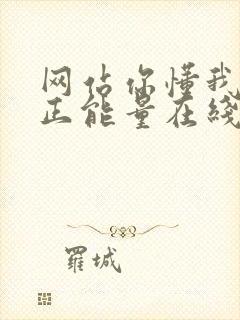 网估你懂我
正能量在綫
羅城